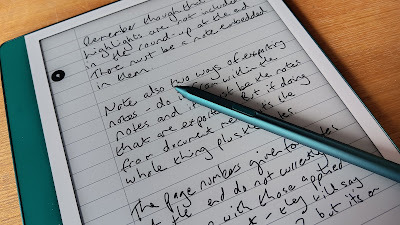 Remember though that
highlights are not included
in the round-up at the end
There must be a note embedded
in them.
Note also two ways of exporting
notes - do it from within the
notes and it must be the notes
that are exported. But if doing
from document the
whole thing plus
The page numbers given to notes
at the end do not currently
with those applied
they will say
? but it's or